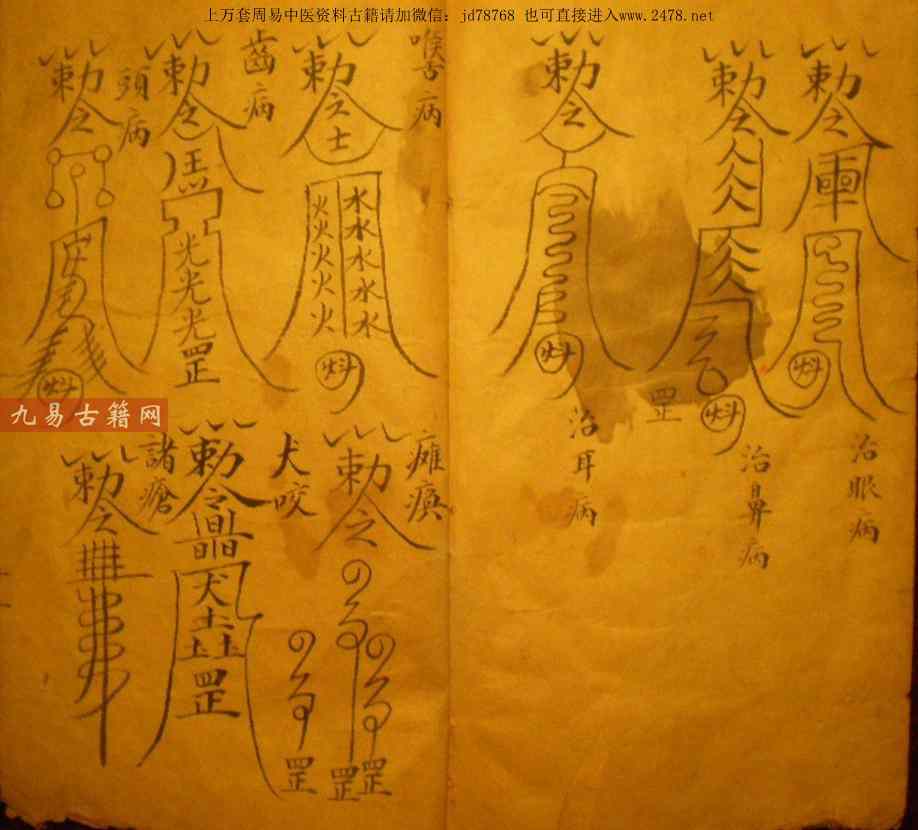 上万套周易中医资料古籍请加微信：jd78768 也可直接进入www.2478.net
勅令
治眼病
勅令
罡
治鼻病
勅令
治耳病
喉舌病
勅令
士
水水水水水
火火火火火
齒病
勅令
光光光罡
頭病
勅令
九易古籍网
癱瘓
勅令
罡
罡
罡
犬咬
勅令
犬
罡
諸瘡
勅令